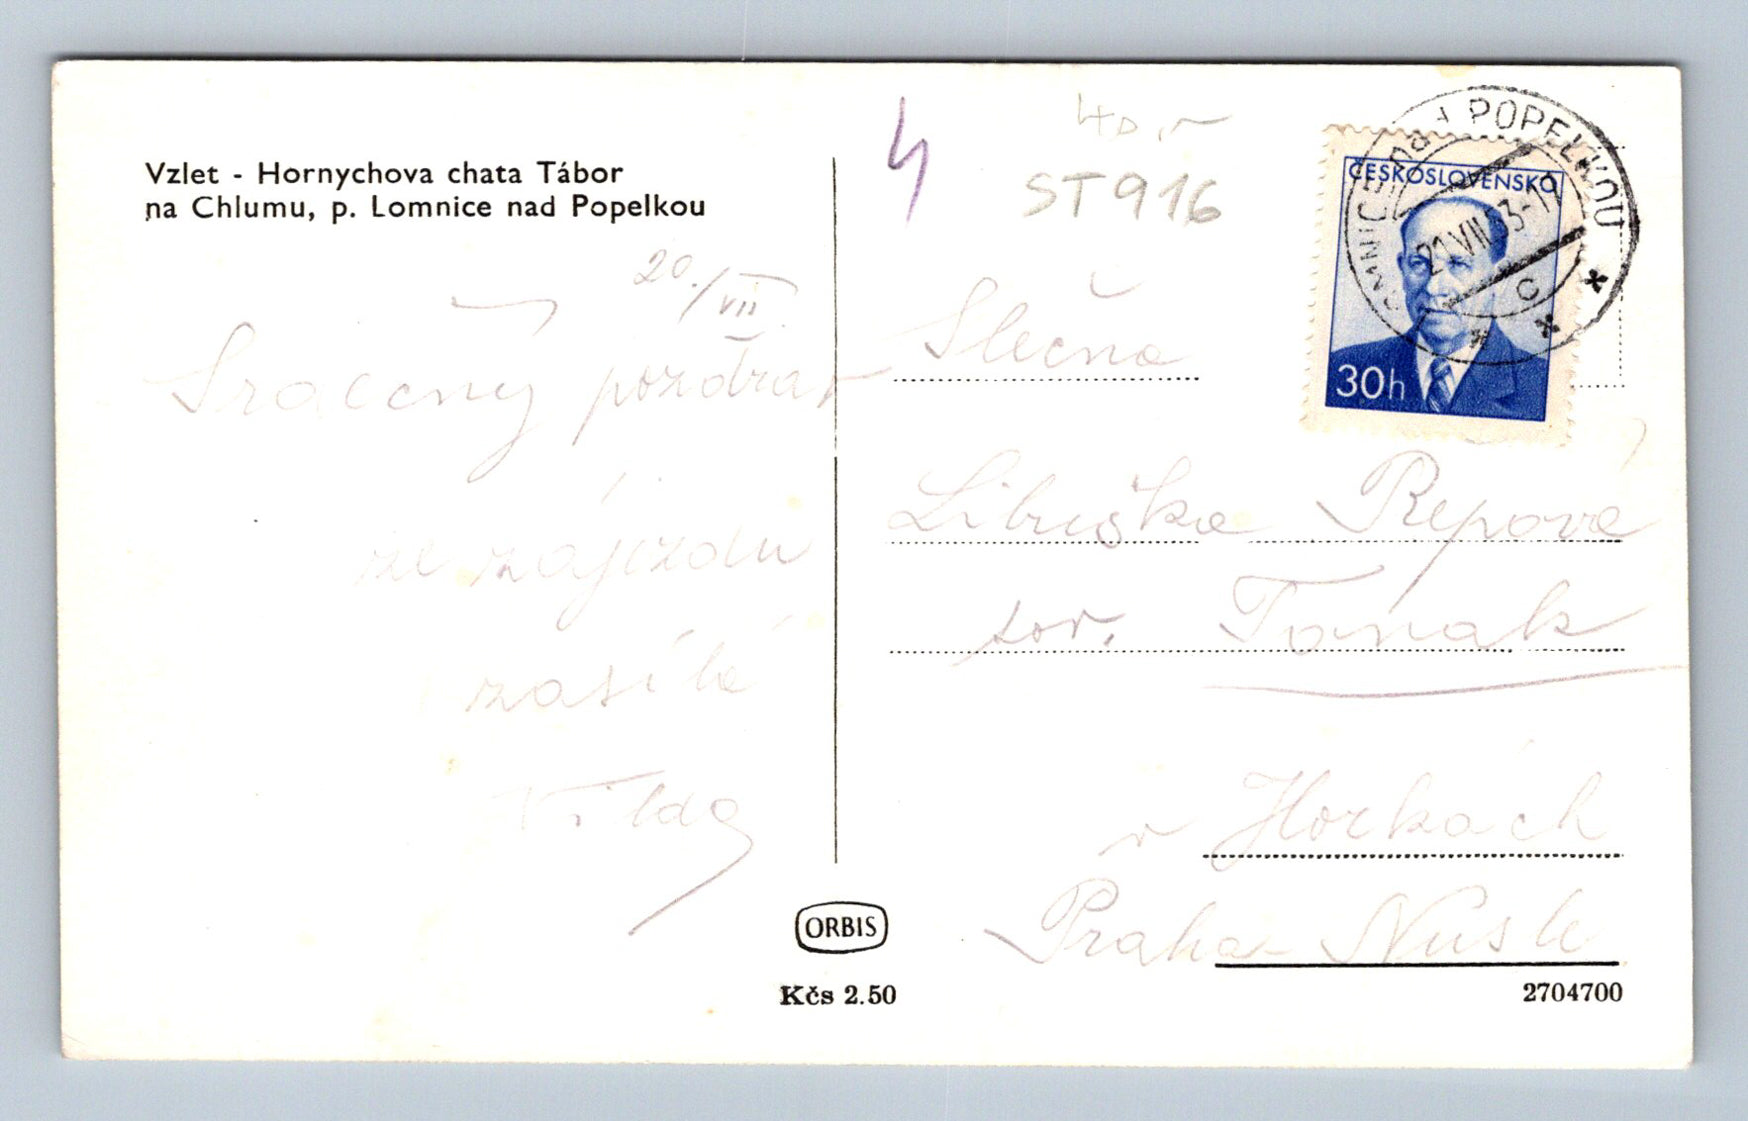 Vzlet - Hornychova chata Tábor
na Chlumu, p. Lomnice nad Popelkou
20./VII.
Srdečný pozdrav
ze zájezdu
zasílá
4
ST916
ČESKOSLOVENSKO
30h
nad POPELKOU
21.VII.53-12
C
Slečna
Libuška Řepová
tov. Tonak
v Horkách
Praha-Nusle
ORBIS
Kčs 2.50
2704700